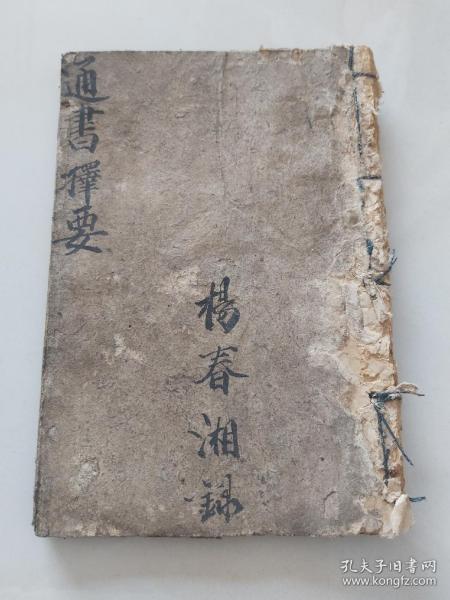 通書擇要
楊春湘錄
孔夫子旧书网
www.kongfz.com